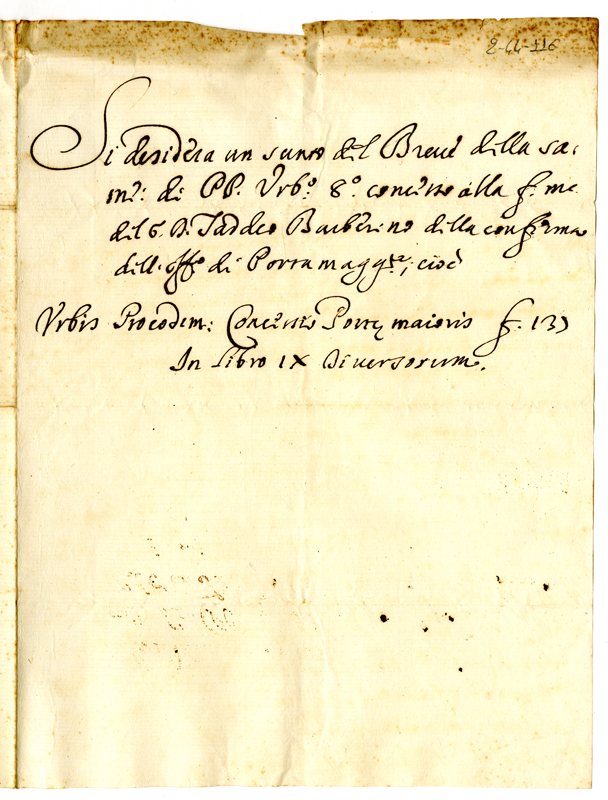 2-44-116
Si desidera un sunto del Breve della sa:
me: di PP. Urbo. 8o. concesso alla f. me.
del S. D. Taddeo Barberino della conferma
dell' offo di Porta maggre; cioè
Urbis Pro eodem: Concessio Portę maioris f. 139
In Libro IX Diversorum.